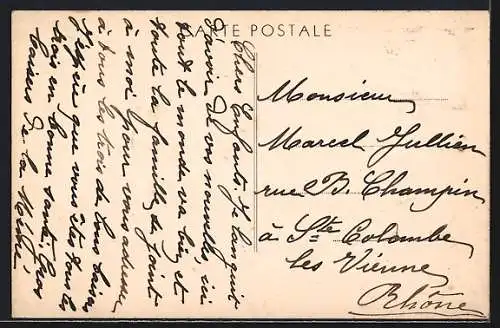 CARTE POSTALE
Chers Enfants. Je languis
d'avoir de vos nouvelles ici
tout le monde va bien et
toute la famille de joint
à moi pour vous adresser
à tous les trois de bons baisers
J'espère que vous êtes tous les
trois en bonne santé Gros
baisers de la Mémé
Monsieur
Marcel Jullien
rue B. Champin
à Ste Colombe
les Vienne
Rhône